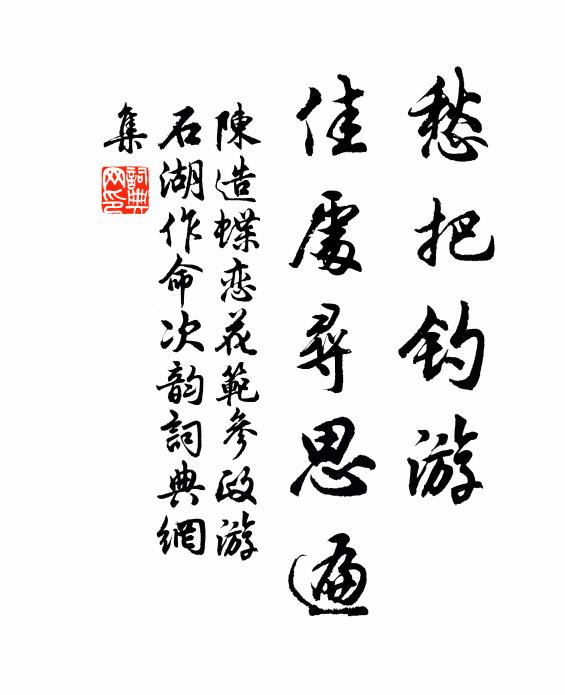 愁把钓游
佳處尋思遍
陳造蝶恋花範參政游
石湖作命次韵詞典網
集
詞典网印